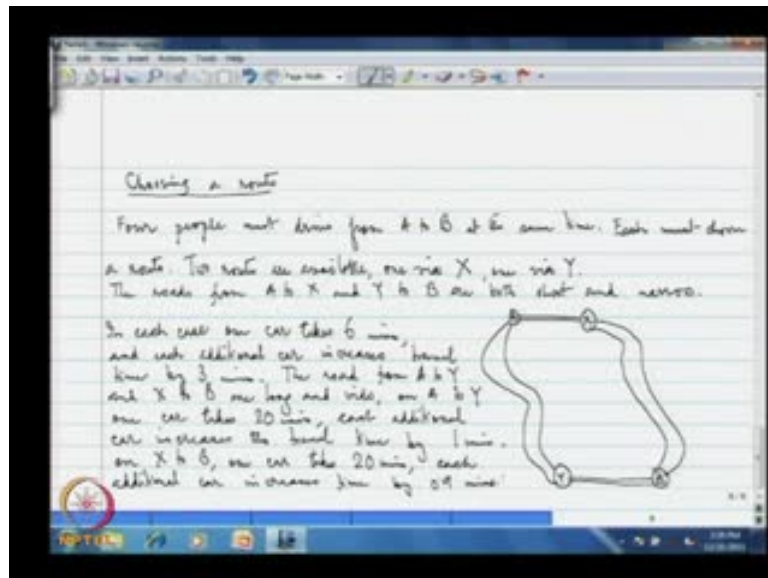 Choosing a route
Four people must drive from A to B at the same time. Each must choose
a route. Two routes are available, one via X, one via Y.
The roads from A to X and Y to B are both short and narrow.
In each case one car takes 6 mins,
and each additional car increases travel
time by 3 mins. The road from A to Y
and X to B are long and wide, on A to Y
one car takes 20 mins, each additional
car increases the travel time by 1 min.
on X to B, one car takes 20 min, each
additional car increases time by 0.9 mins
Y
NPTEL